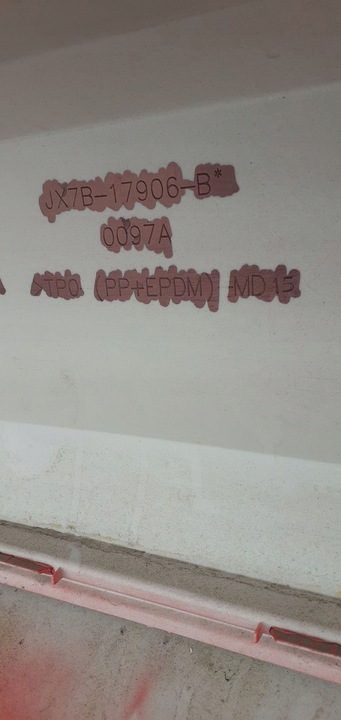 JX7B-17906-B*
0097A
>TPO (PP+EPDM)-MD 15